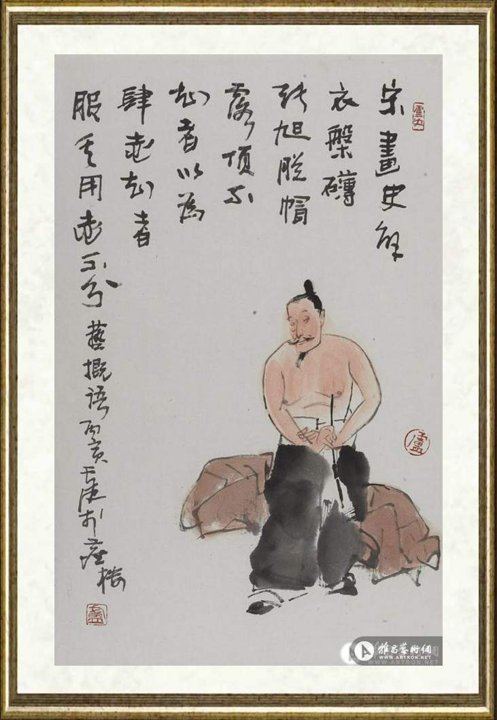 宋畫史解
衣槃礴
張旭脫帽
露頂不
知者以為
肆志知者
服其用志不分 藝概語
雅昌藝術網
WWW.ARTRON.NET